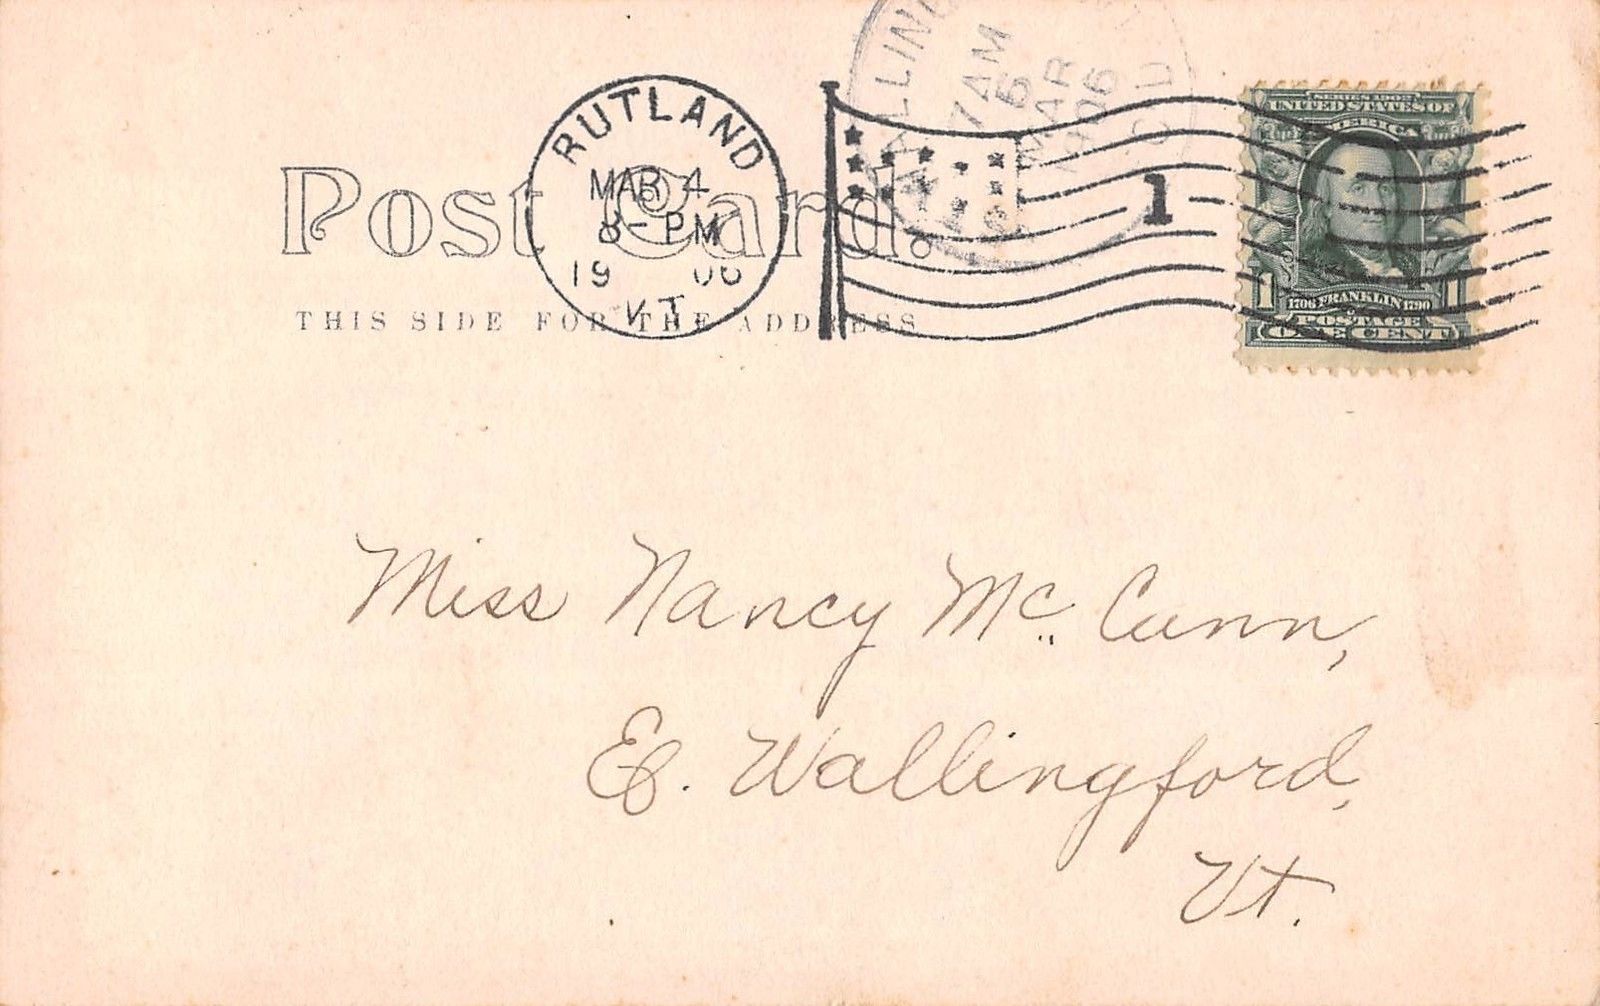 Post Card.
THIS SIDE FOR THE ADDRESS
RUTLAND
MAR 4
8-PM
1906
VT.
7 AM
6
MAR
1906
1
SERIES 1902
UNITED STATES OF
AMERICA
1 1706 FRANKLIN 1790 1
POSTAGE
ONE CENT
Miss Nancy Mc. Cunn,
E. Wallingford,
Vt.